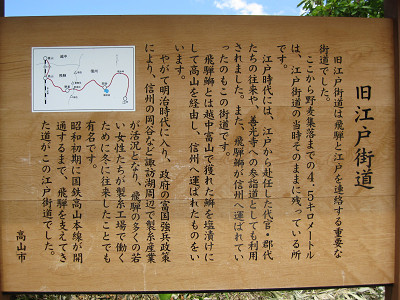 旧江戸街道
旧江戸街道は飛騨と江戸を連絡する重要な
街道でした。
ここから野麦集落までの4.5キロメートル
は、江戸街道の当時そのままに残っている所
です。
江戸時代には、江戸から赴任した代官・郡代
たちの往来や、善光寺への参詣道としても利用
されました。また、飛騨鰤が信州へ運ばれてい
ったのもこの街道です。
飛騨鰤とは越中富山で獲れた鰤を塩漬けに
して高山を経由し、信州へ運ばれたものをい
います。
やがて明治時代に入り、政府の富国強兵政策
により、信州の岡谷など諏訪湖周辺で製糸産業
が活況となり、飛騨の多くの若
い女性たちが製糸工場で働く
ために冬に往来したことでも
有名です。
昭和初期に国鉄高山本線が開
通するまで、飛騨を支えてき
た道がこの江戸街道でした。
高山市